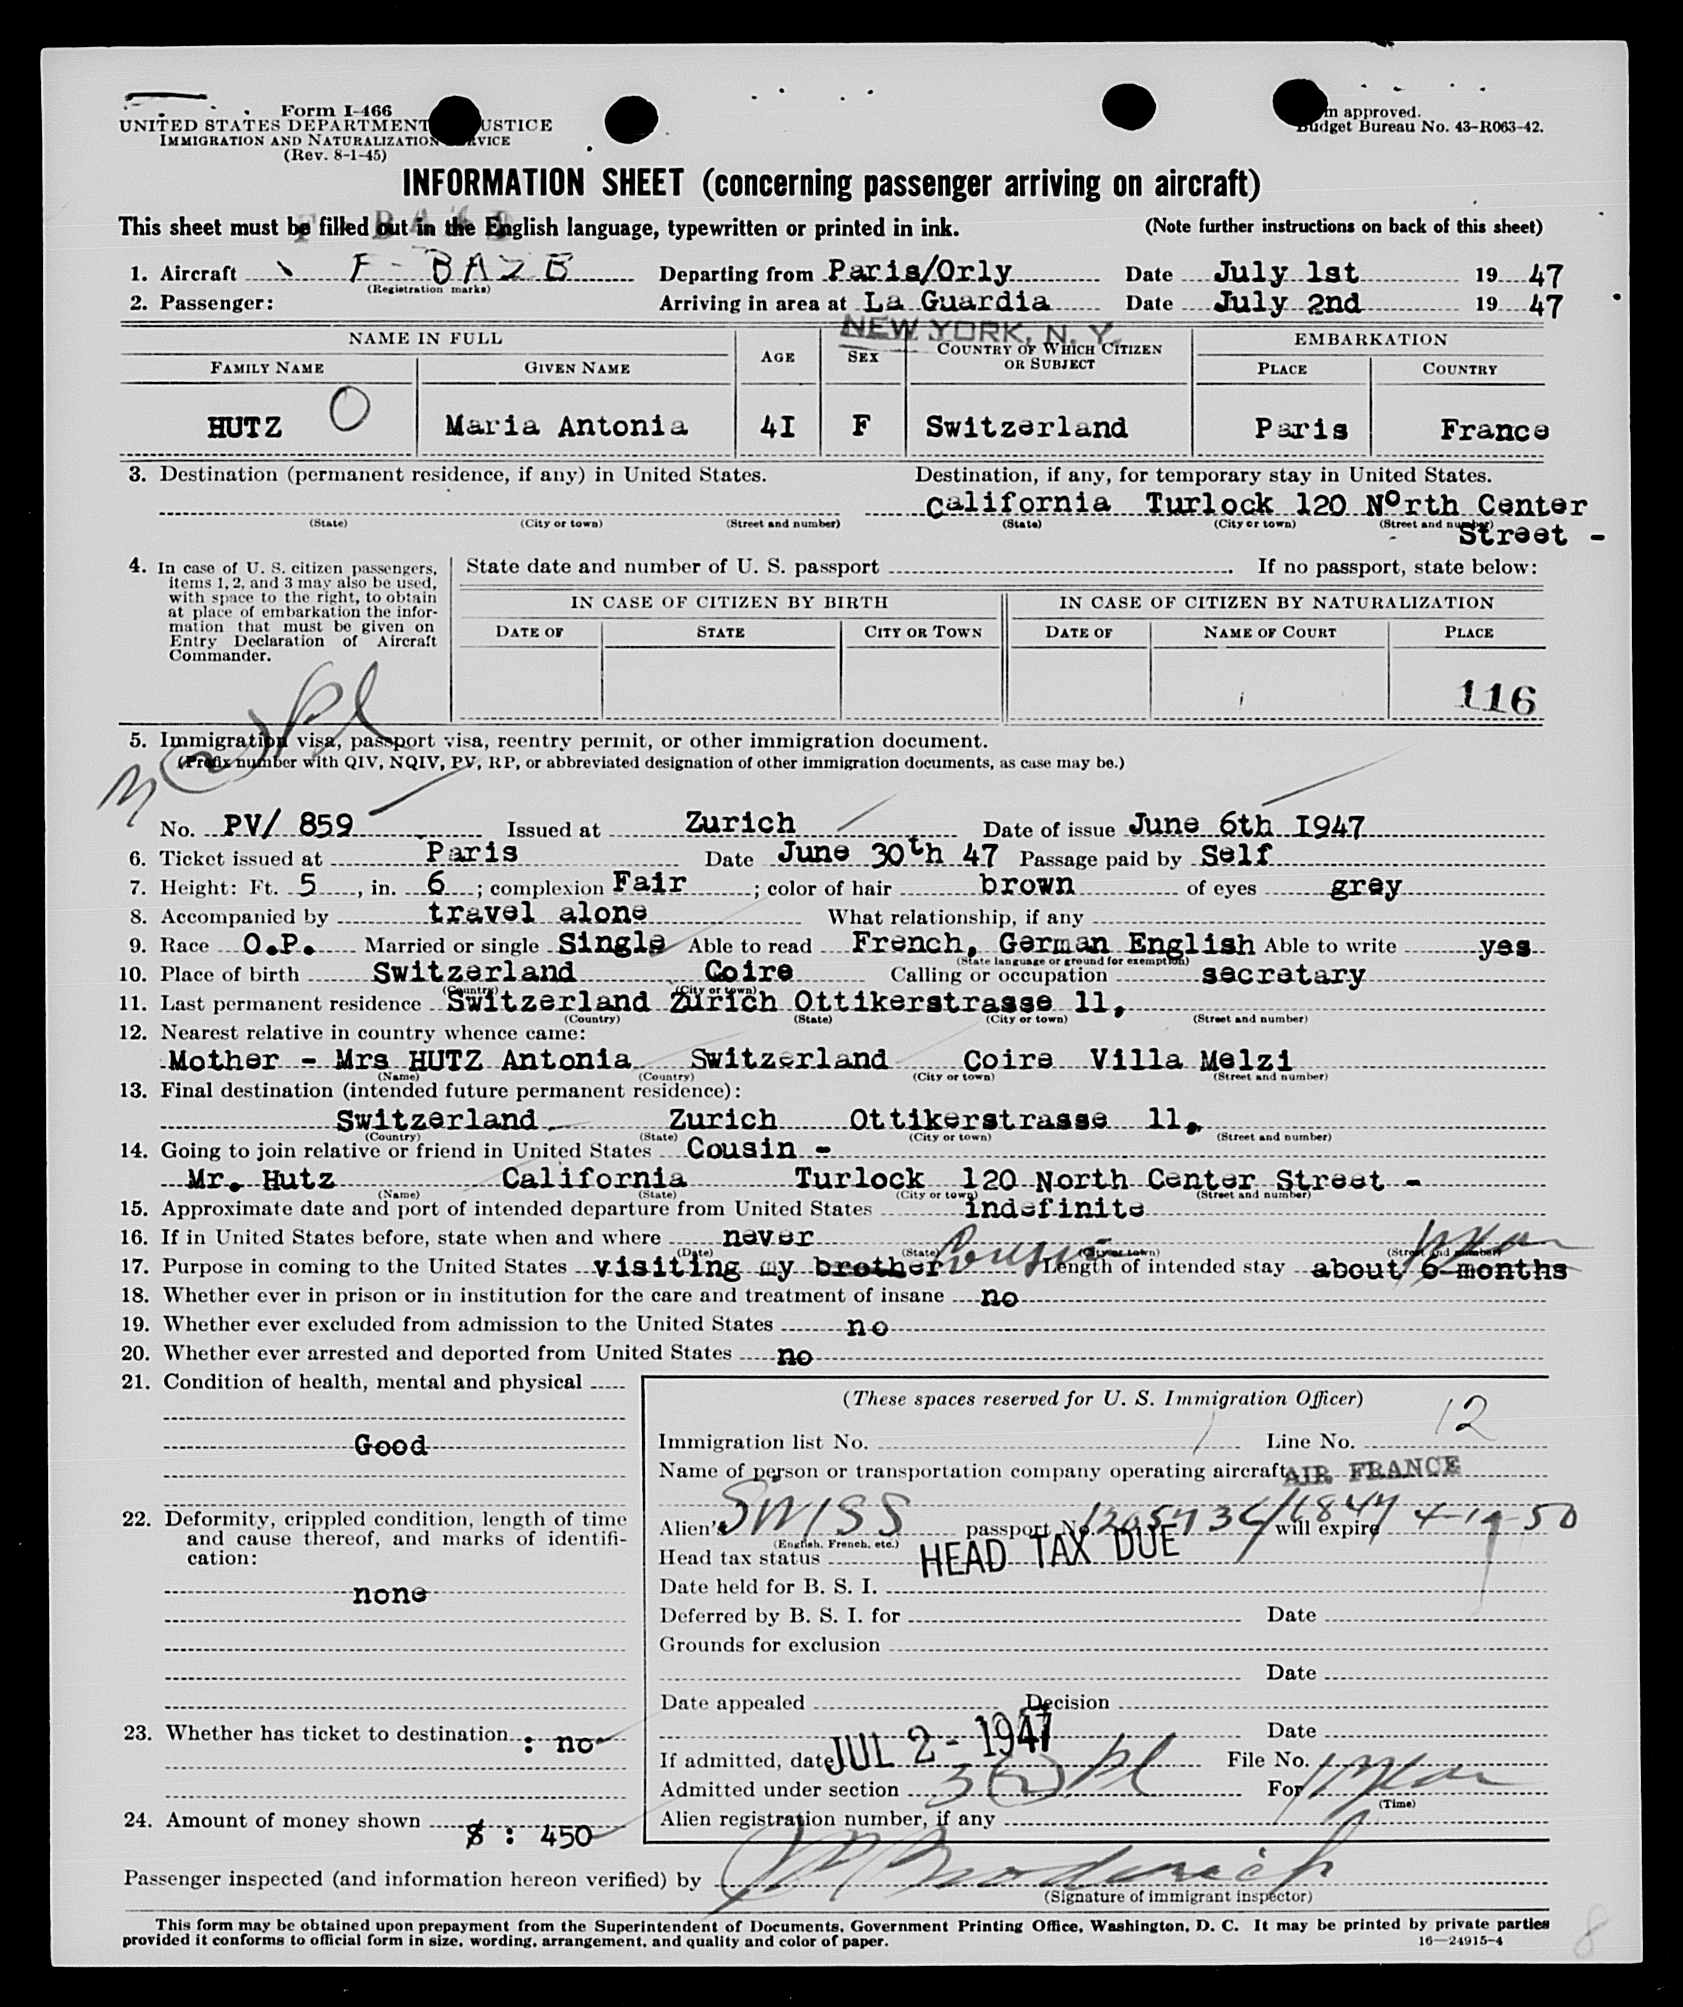 Form I-466
UNITED STATES DEPARTMENT USTICE
IMMIGRATION AND NATURALIZATION RVICE
(Rev. 8-1-45)
m approved.
Budget Bureau No. 43-R063-42.
INFORMATION SHEET (concerning passenger arriving on aircraft)
This sheet must be filled out in the English language, typewritten or printed in ink. (Note further instructions on back of this sheet)
1. Aircraft F - BAZB Departing from Paris/Orly Date July 1st 19 47
(Registration marks)
2. Passenger: Arriving in area at La Guardia Date July 2nd 19 47
NEW YORK, N. Y.
NAME IN FULL AGE SEX COUNTRY OF WHICH CITIZEN OR SUBJECT EMBARKATION
FAMILY NAME GIVEN NAME PLACE COUNTRY
HUTZ O Maria Antonia 4I F Switzerland Paris France
3. Destination (permanent residence, if any) in United States. Destination, if any, for temporary stay in United States.
California Turlock 120 North Center
(State) (City or town) (Street and number) (State) (City or town) (Street and number)
Street -
4. In case of U. S. citizen passengers, items 1, 2, and 3 may also be used, with space to the right, to obtain at place of embarkation the information that must be given on Entry Declaration of Aircraft Commander.
State date and number of U. S. passport If no passport, state below:
IN CASE OF CITIZEN BY BIRTH IN CASE OF CITIZEN BY NATURALIZATION
DATE OF STATE CITY OR TOWN DATE OF NAME OF COURT PLACE
116
3(2) pl
5. Immigration visa, passport visa, reentry permit, or other immigration document.
(Prefix number with QIV, NQIV, PV, RP, or abbreviated designation of other immigration documents, as case may be.)
No. PV/ 859 Issued at Zurich Date of issue June 6th I947
6. Ticket issued at Paris Date June 30th 47 Passage paid by Self
7. Height: Ft. 5, in. 6; complexion Fair; color of hair brown of eyes grey
8. Accompanied by travel alone What relationship, if any
9. Race O.P. Married or single Single Able to read French, German English Able to write yes
(State language or ground for exemption)
10. Place of birth Switzerland Coire Calling or occupation secretary
(Country) (City or town)
11. Last permanent residence Switzerland Zurich Ottikerstrasse 11,
(Country) (State) (City or town) (Street and number)
12. Nearest relative in country whence came:
Mother - Mrs HUTZ Antonia Switzerland Coire Villa Melzi
(Name) (Country) (City or town) (Street and number)
13. Final destination (intended future permanent residence):
Switzerland Zurich Ottikerstrasse 11,
(Country) (State) (City or town) (Street and number)
14. Going to join relative or friend in United States Cousin -
Mr. Hutz California Turlock 120 North Center Street -
(Name) (State) (City or town) (Street and number)
15. Approximate date and port of intended departure from United States indefinite
16. If in United States before, state when and where never
(Date) (State) (City or town) (Street and number)
17. Purpose in coming to the United States visiting my brother Cousin Length of intended stay about 6 months 1 year
18. Whether ever in prison or in institution for the care and treatment of insane no
19. Whether ever excluded from admission to the United States no
20. Whether ever arrested and deported from United States no
21. Condition of health, mental and physical
Good
22. Deformity, crippled condition, length of time and cause thereof, and marks of identification:
none
23. Whether has ticket to destination : no
24. Amount of money shown $ : 450
(These spaces reserved for U. S. Immigration Officer)
Immigration list No. 1 Line No. 12
Name of person or transportation company operating aircraft AIR FRANCE
Alien's SWISS passport No. will expire 4-19-50
(English, French, etc.)
Head tax status HEAD TAX DUE
Date held for B. S. I.
Deferred by B. S. I. for Date
Grounds for exclusion
Date
Date appealed Decision
Date
If admitted, date JUL 2 - 1947 File No.
Admitted under section 3(2) pl For 1 year
(Time)
Alien registration number, if any
Passenger inspected (and information hereon verified) by
(Signature of immigrant inspector)
This form may be obtained upon prepayment from the Superintendent of Documents, Government Printing Office, Washington, D. C. It may be printed by private parties
provided it conforms to official form in size, wording, arrangement, and quality and color of paper. 16—24915-4
8